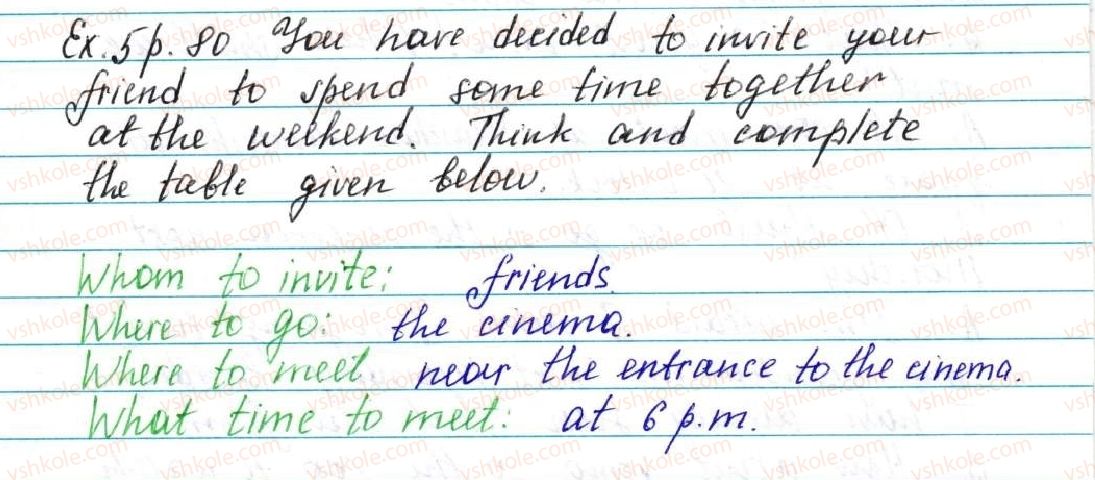 Ex. 5 p. 80 You have decided to invite your
friend to spend some time together
at the weekend. Think and complete
the table given below.
Whom to invite: friends.
Where to go: the cinema.
Where to meet near the entrance to the cinema.
What time to meet: at 6 p.m.
vshkole.com